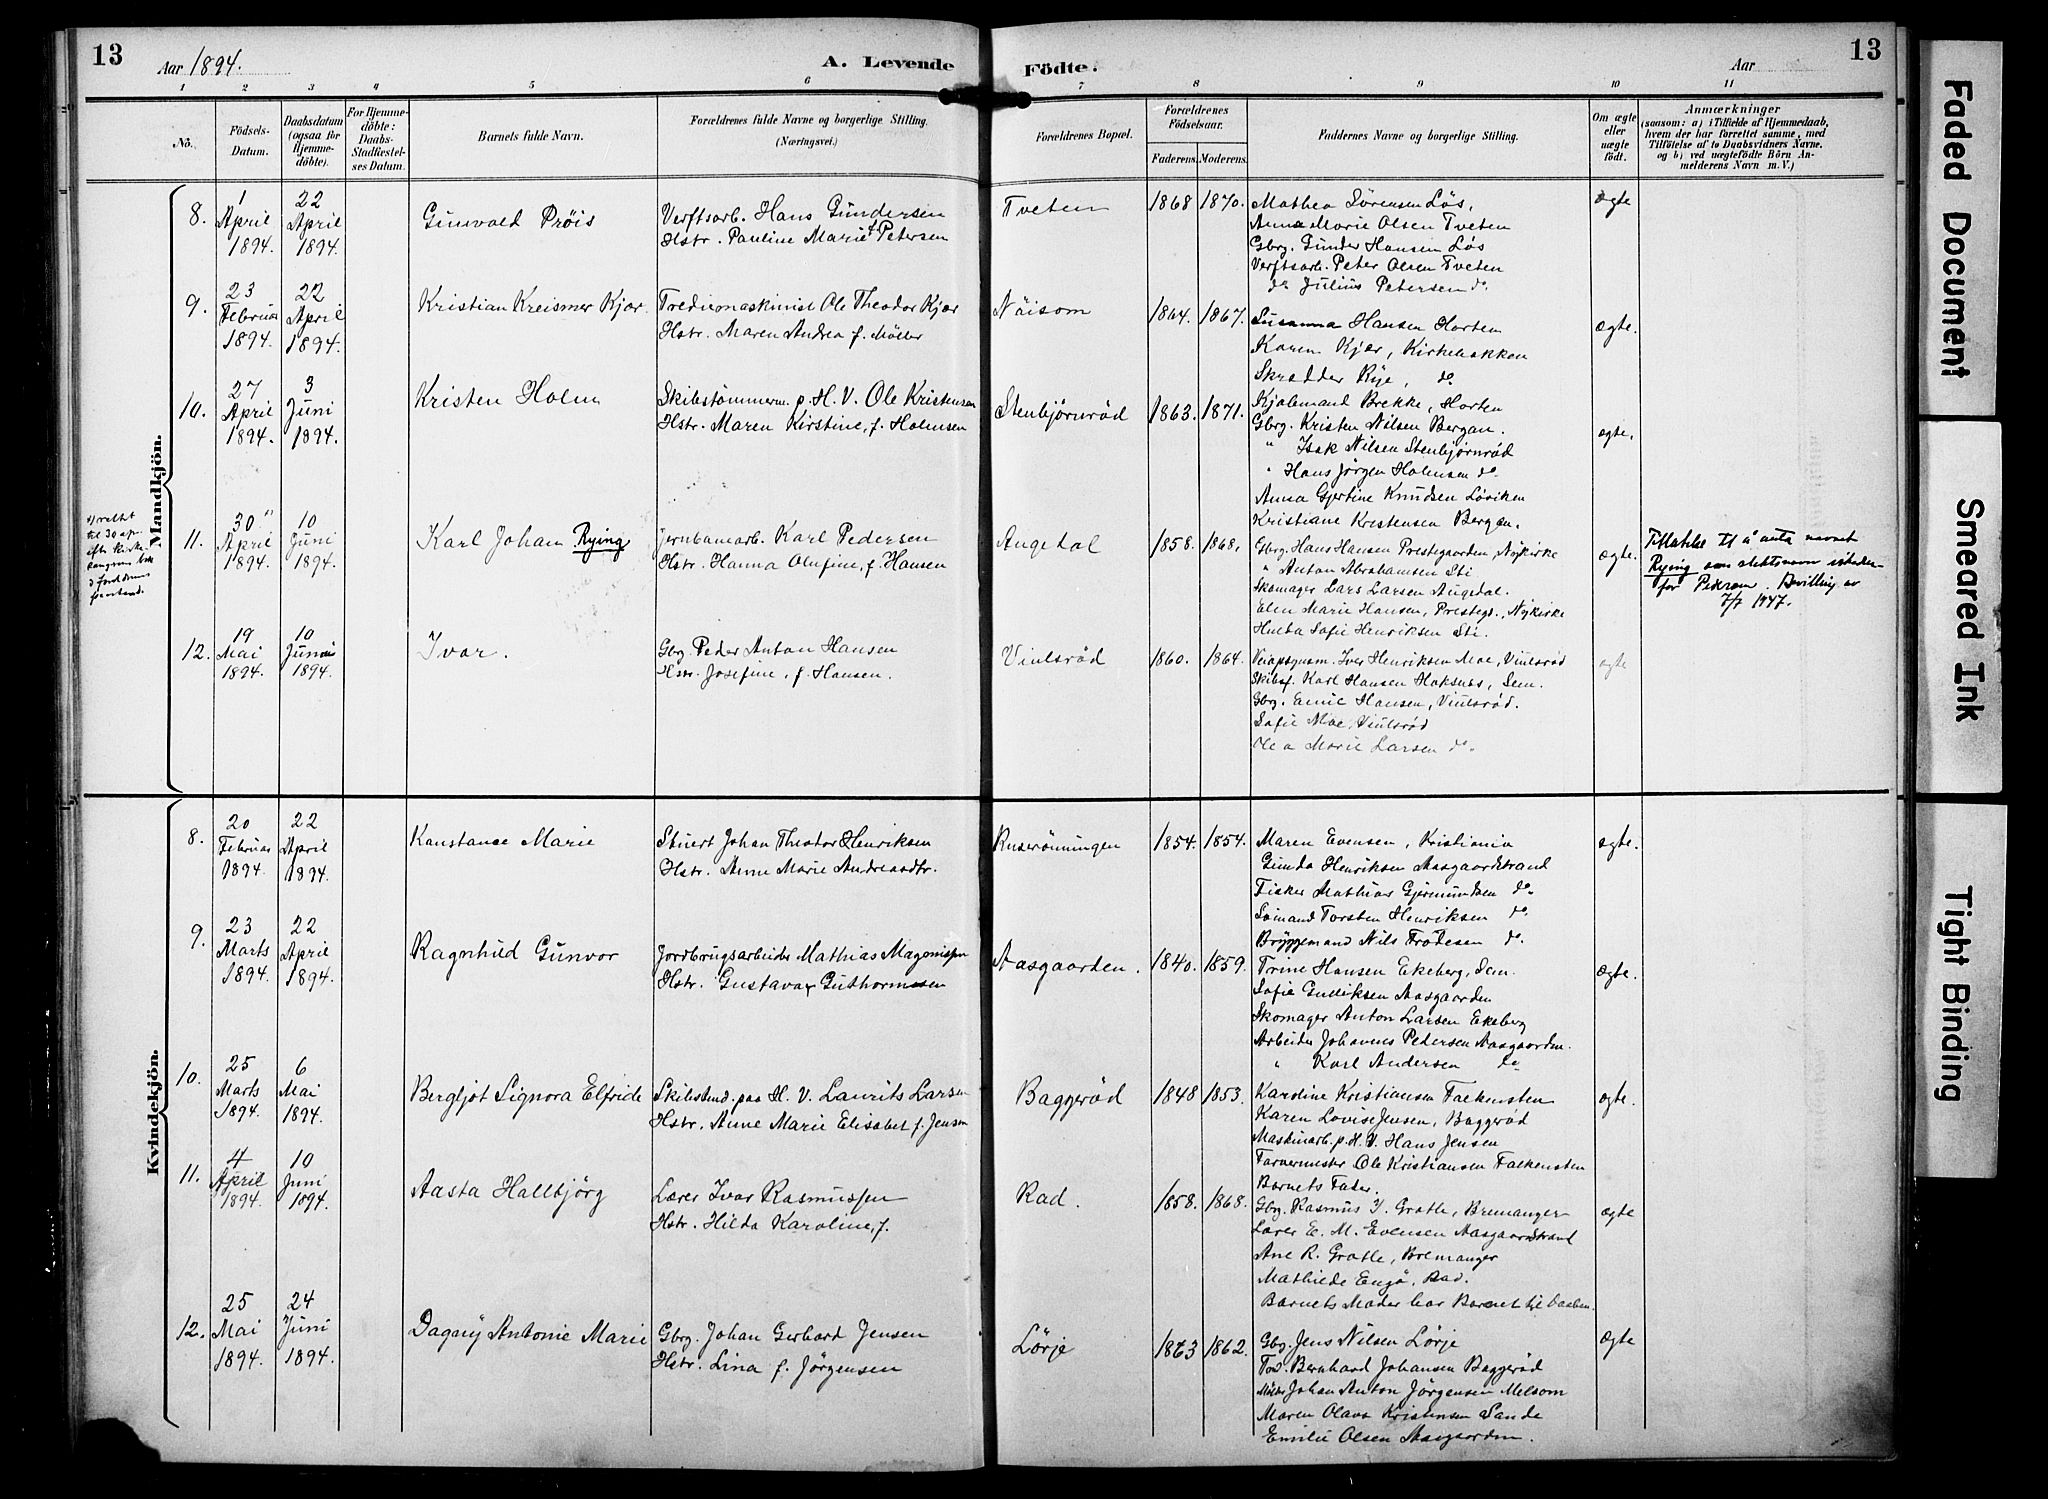 13
Aar 1894.
A. Levende
Födte.
Aar
13
1 2 3 4 5 6 7 8 9 10 11
No.
Födsels-
Datum.
Daabsdatum
(ogsaa for
Hjemme-
döbte).
For Hjemme-
döbte:
Daabs-
Stadfæstel-
ses Datum.
Barnets fulde Navn.
Forældrenes fulde Navne og borgerlige Stilling.
(Næringsvei.)
Forældrenes Bopæl.
Forældrenes
Födselsaar.
Faderens. Moderens.
Faddernes Navne og borgerlige Stilling.
Om ægte
eller
uægte
födt.
Anmærkninger
(saasom: a) i Tilfælde af Hjemmedaab,
hvem der har forrettet samme, med
Tilföielse af to Daabsvidners Navne.
og b) ved uægtefödte Börn An-
melderens Navn m. V.)
Mandkjön.
8.
1
April
1894.
22
April
1894.
Gunvald Prøis
Verftsarb. Hans Gundersen
Hstr. Pauline Marie f. Petersen
Tveten
1868 1870.
Mathea Sørensen Løs,
Anne Marie Olsen Tveten
Gbrg. Gunder Hansen Løs
Verftsarb. Peter Olsen Tveten
do Julius Petersen do.
Ægte
9.
23
Februar
1894.
22
April
1894.
Kristian Kreismer Kjær.
Trediemaskinist Ole Theodor Kjær
Hstr. Maren Andrea f. Möller
Nöisom
1864. 1867.
Susanna Hansen Horten
Karen Kjær, Kirkebakken
Skrædder Rye, do.
Kjølemand Brekke, Horten
ægte.
10.
27
April
1894.
3
Juni
1894.
Kristen Holm
Skibstömmerm. p. H. V. Ole Kristensen
Hstr. Maren Kirstine, f. Holmsen
Stenbjörnröd
1863. 1871.
Gbrg. Kristen Nilsen Bergan.
" Isak Nilsen Stenbjørnrød
" Hans Jørgen Holmsen do.
Anna Gjertine Knudsen Løviken
Kristiane Kristensen Bergan.
ægte.
11.
30
April
1894.
10
Juni
1894.
Karl Johan Rying
Jernbanearb. Karl Pedersen
Hstr. Hanna Olufine, f. Hansen
Augedal
1858. 1868.
Gbrg. Hans Hansen Prestegaarden, Nykirke
" Anton Abrahamsen Sti
Skomager Lars Larsen Augedal.
Elen Marie Hansen, Prestegd., Nykirke
Hulda Sofie Henriksen Sti.
ægte.
Tillatelse til å anta navnet
Rying som slektsnavn isteden-
for Pedersen. Bevilling av
7/7 1947.
12.
19
Mai
1894.
10
Juni
1894.
Ivar.
Gbrg. Peder Anton Hansen
Hstr. Josefine, f. Hansen.
Viulsröd
1860. 1864.
Iver Henriksen Moe, Viulsrød
Skibsf. Karl Hansen Haksnes, Sem.
Gbrg. Emil Hansen, Viulsrød.
Sofie Moe, Viulsrød
Olea Marie Larsen do.
ægte
Kvindekjön.
8.
20
Februar
1894.
22
April
1894.
Konstance Marie
Stuert Johan Theodor Henriksen
Hstr. Anne Marie Andreasdtr.
Ruserönningen
1854. 1854.
Maren Evensen, Kristiania
Gunda Henriksen Aasgaardstrand
Fisker Mathias Gjermundsen do.
Sömand Torsten Henriksen do.
Bryggemand Nils Frodesen do.
ægte.
9.
23
Marts
1894.
22
April
1894.
Ragnhild Gunvor
Jordbrugsarbeider Mathias Magnussen
Hstr. Gustava Guthormsen
Aasgaarden.
1840. 1859.
Trine Hansen Ekeberg, Sem.
Sofie Gulliksen Aasgaarden
Skomager Anton Larsen Ekeberg
Arbeider Johannes Pedersen Aasgaarden.
" Karl Andersen do
Ægte.
10.
25
Marts
1894.
6
Mai
1894.
Bergljot Signora Elfride
Skibstmd. paa H. V. Laurits Larsen
Hstr. Anne Marie Elisabet f. Jensen
Baggeröd
1848 1853.
Karoline Kristiansen Falkensten
Karen Lovise Jensen, Baggerød
Maskinarb. p. H. V. Hans Jensen
Farvermester Ole Kristiansen Falkensten
Barnets Fader.
ægte.
11.
4
April
1894.
10
Juni
1894.
Aasta Hallbjörg
Lærer Ivar Rasmussen
Hstr. Hilda Karoline, f.
Rad.
1858. 1868.
Gbrg. Rasmus I. Grotle, Bremanger
Lærer E. M. Evensen Aasgaardstrand
Ane R. Grotle, Bremanger
Mathilde Engø, Rad.
Barnets Moder bar Barnet til Daaben.
ægte
12.
25
Mai
1894.
24
Juni
1894.
Dagny Antonie Marie
Gbrg. Johan Gerhard Jensen
Hstr. Lina f. Jörgensen
Lörje
1863 1862.
Gbrg. Jens Nilsen Lörje
Bernhard Johansen Baggeröd
Johan Anton Jörgensen Melsom
Maren Olava Kristensen Sande
Emilie Olsen Aasgaarden.
Ægte
Faded Document
Smeared Ink
Tight Binding